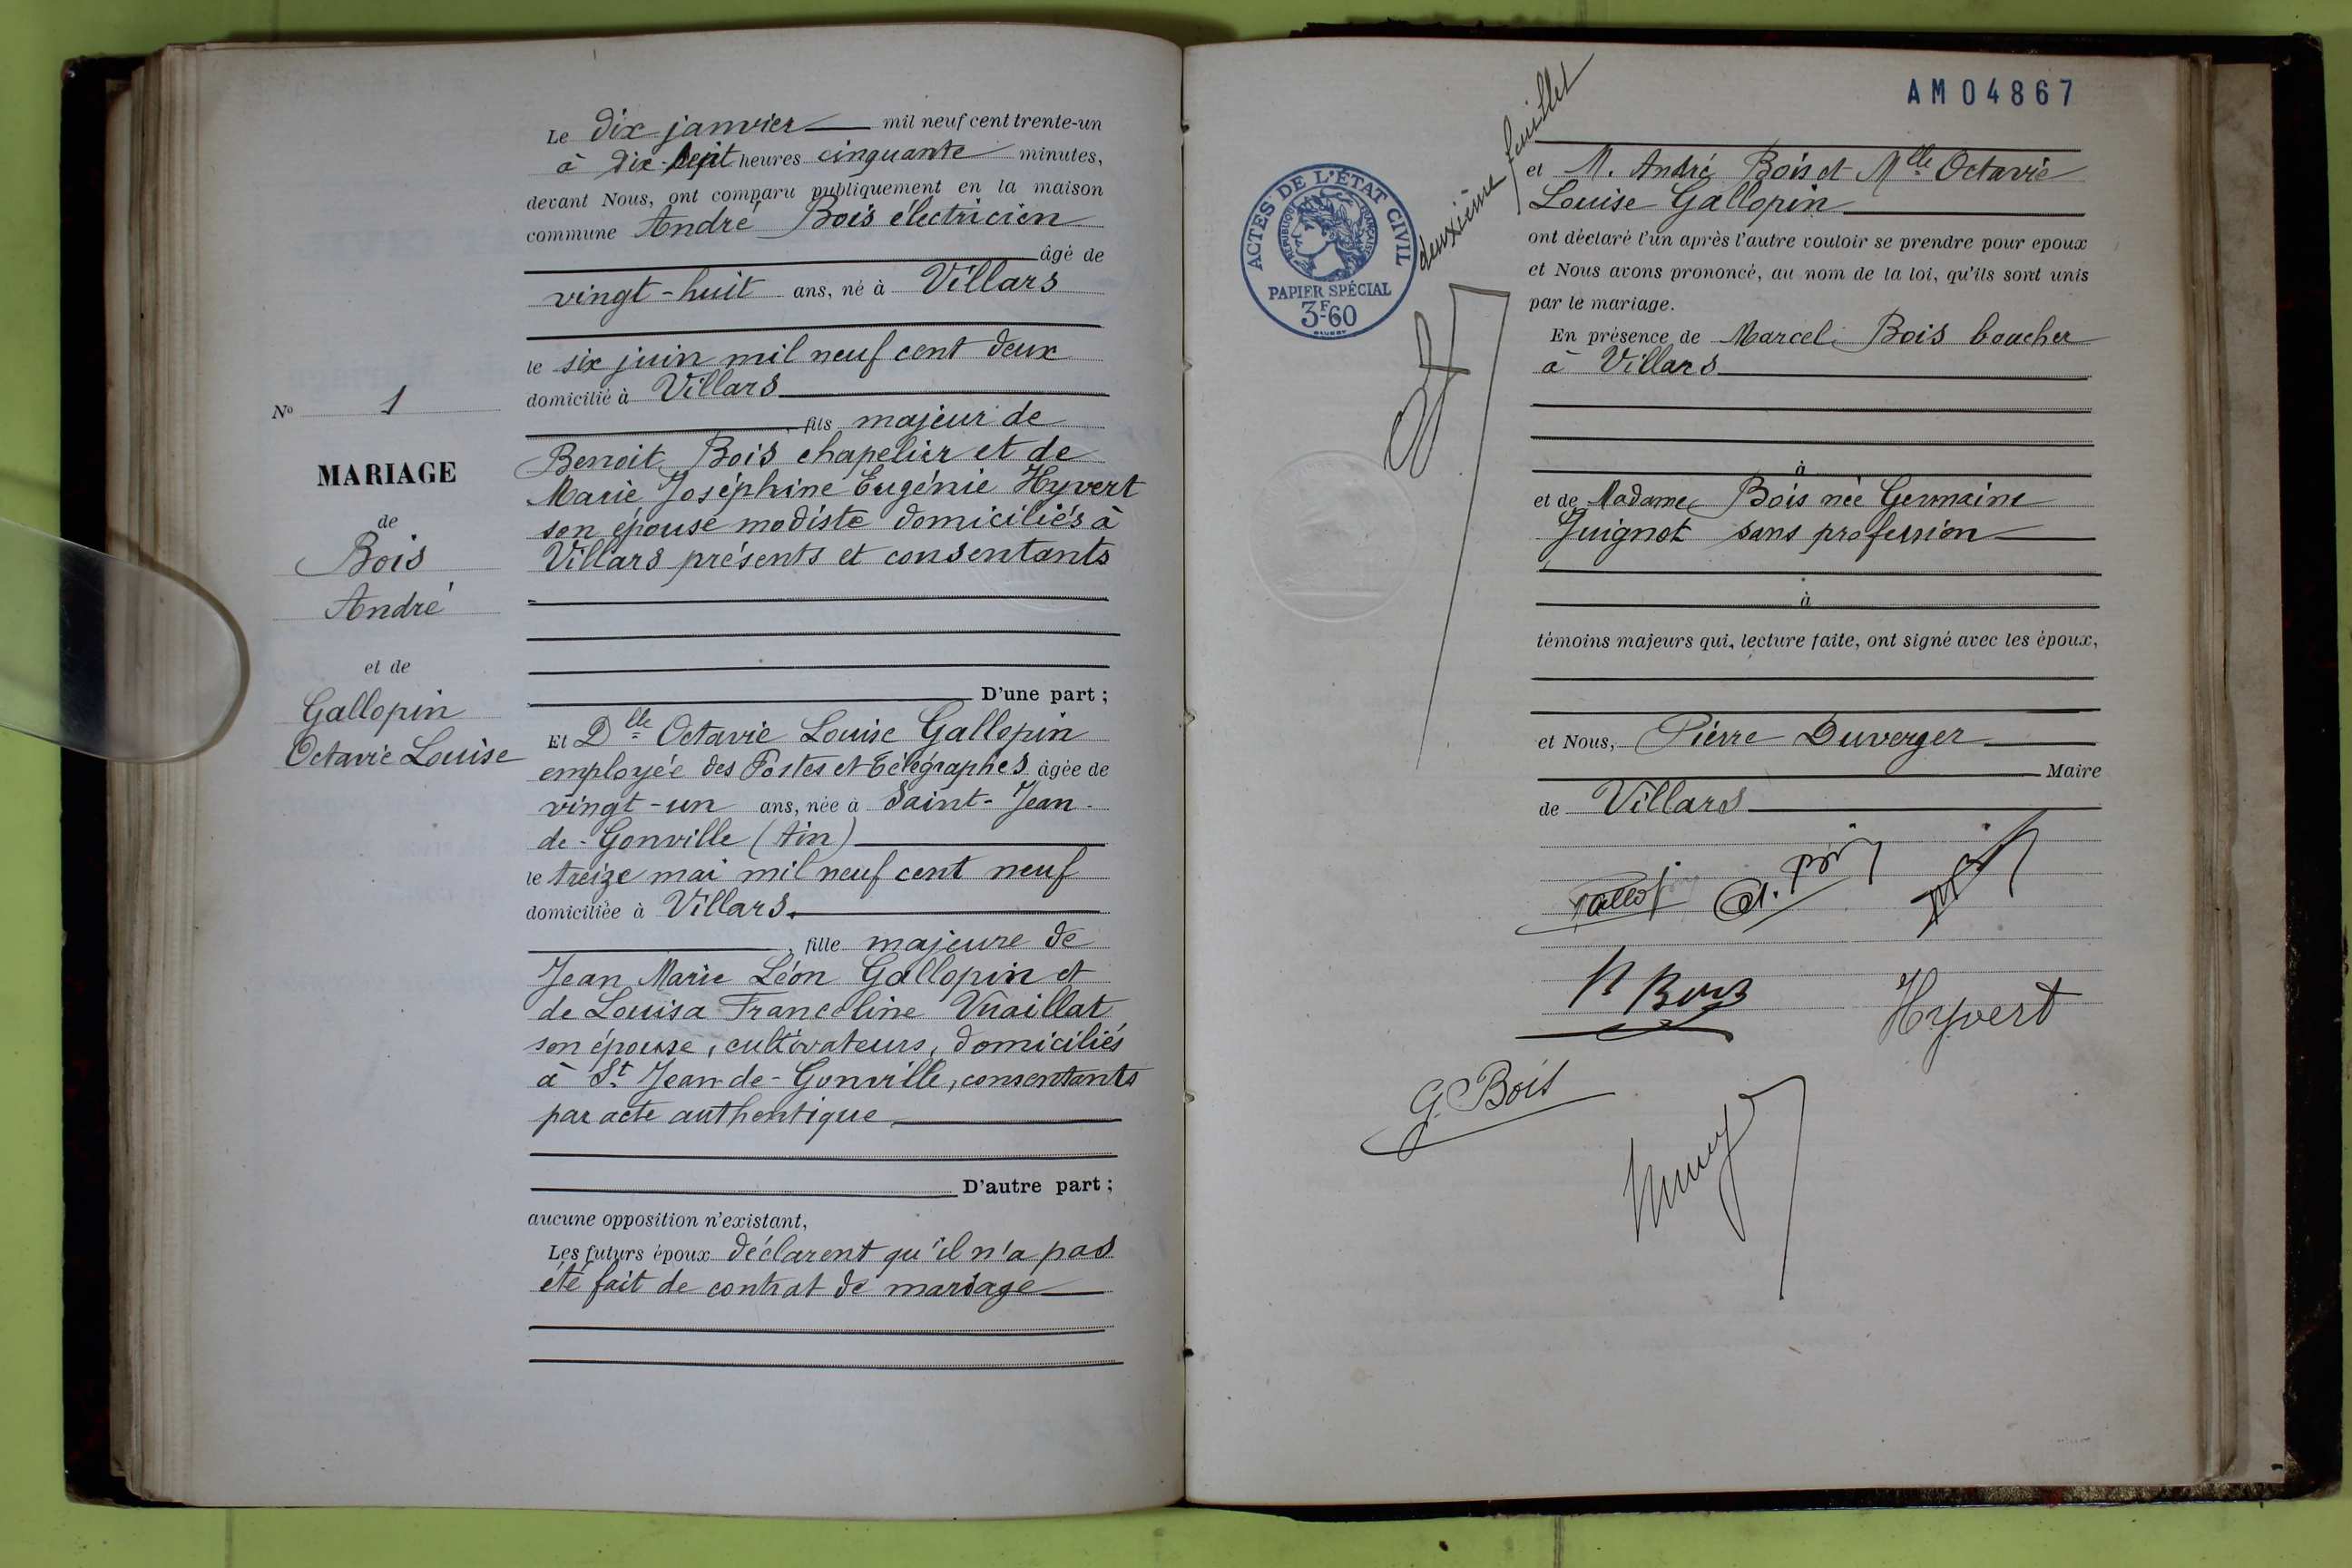 Le dix janvier mil neuf cent trente-un
à dix-sept heures cinquante minutes,
devant Nous, ont comparu publiquement en la maison
commune André Bois électricien
âgé de
vingt-huit ans, né à Villars
le six juin mil neuf cent deux
domicilié à Villars
fils majeur de
Benoit Bois chapelier et de
Marie Joséphine Eugénie Hyvert
son épouse modiste domiciliés à
Villars présents et consentants
D'une part ;
Et Dlle Octavie Louise Gallopin
employée des Postes et Télégraphes âgée de
vingt-un ans, née à Saint-Jean-
de-Gonville (Ain)
le treize mai mil neuf cent neuf
domiciliée à Villars.
fille majeure de
Jean Marie Léon Gallopin et
de Louisa Franceline Vuaillat
son épouse, cultivateurs, domiciliés
à St Jean-de-Gonville, consentants
par acte authentique
D'autre part ;
aucune opposition n'existant,
Les futurs époux déclarent qu'il n'a pas
été fait de contrat de mariage
No 1
MARIAGE
de
Bois
André
et de
Gallopin
Octavie Louise
AM04867
deuxième feuillet
ACTES DE L'ÉTAT CIVIL
RÉPUBLIQUE FRANÇAISE
PAPIER SPÉCIAL
3F60
et M. André Bois et Mlle Octavie
Louise Gallopin
ont déclaré l'un après l'autre vouloir se prendre pour epoux
et Nous avons prononcé, au nom de la loi, qu'ils sont unis
par le mariage.
En présence de Marcel Bois boucher
à Villars
à
et de Madame Bois née Germaine
Guignot sans profession
à
témoins majeurs qui, lecture faite, ont signé avec les époux,
et Nous, Pierre Duverger
Maire
de Villars
Hyvert
G. Bois